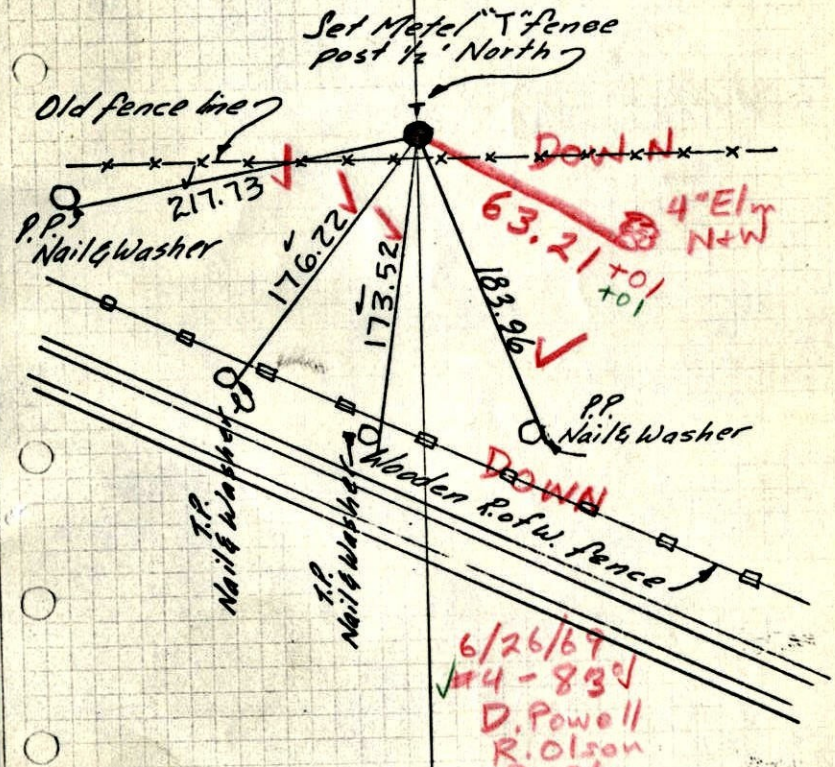 Set Metel "T" fence
post 1/2' North
Old fence line
DOWN
217.73
P.P.
Nail & Washer
176.22
173.52
183.96
63.21 +01
+01
4" Elm
N+W
P.P.
Nail & Washer
T.P.
Nail & Washer
T.P.
Nail & Washer
DOWN
Wooden R.of W. fence
6/26/69
#4-83
D. Powell
R. Olson